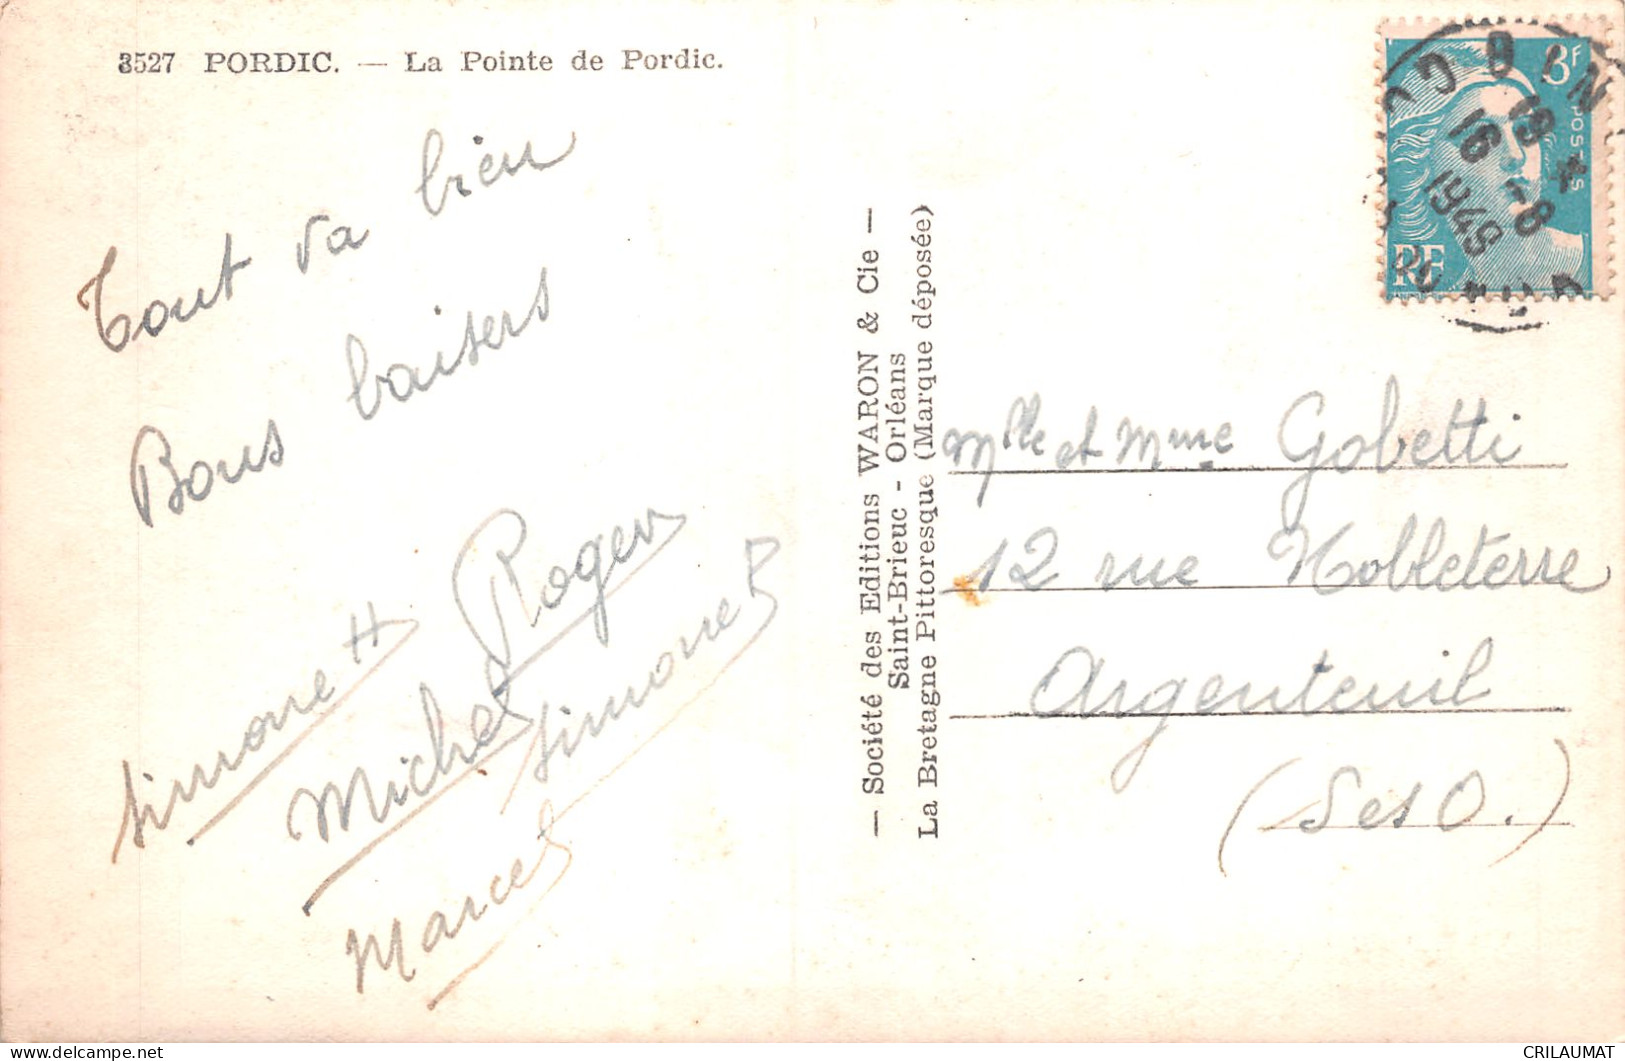 3527 PORDIC. — La Pointe de Pordic.
Tout va bien
Bons baisers
Simone H
Roger
Michel
Simone B
Marcel
— Société des Editions WARON & Cie —
Saint-Brieuc - Orléans
La Bretagne Pittoresque (Marque déposée)
3F
POSTES
RF
18 4
16 -8
1949
Mlle et Mme Gobetti
12 rue Nobleterre
Argenteuil
(S et O.)
CRILAUMAT